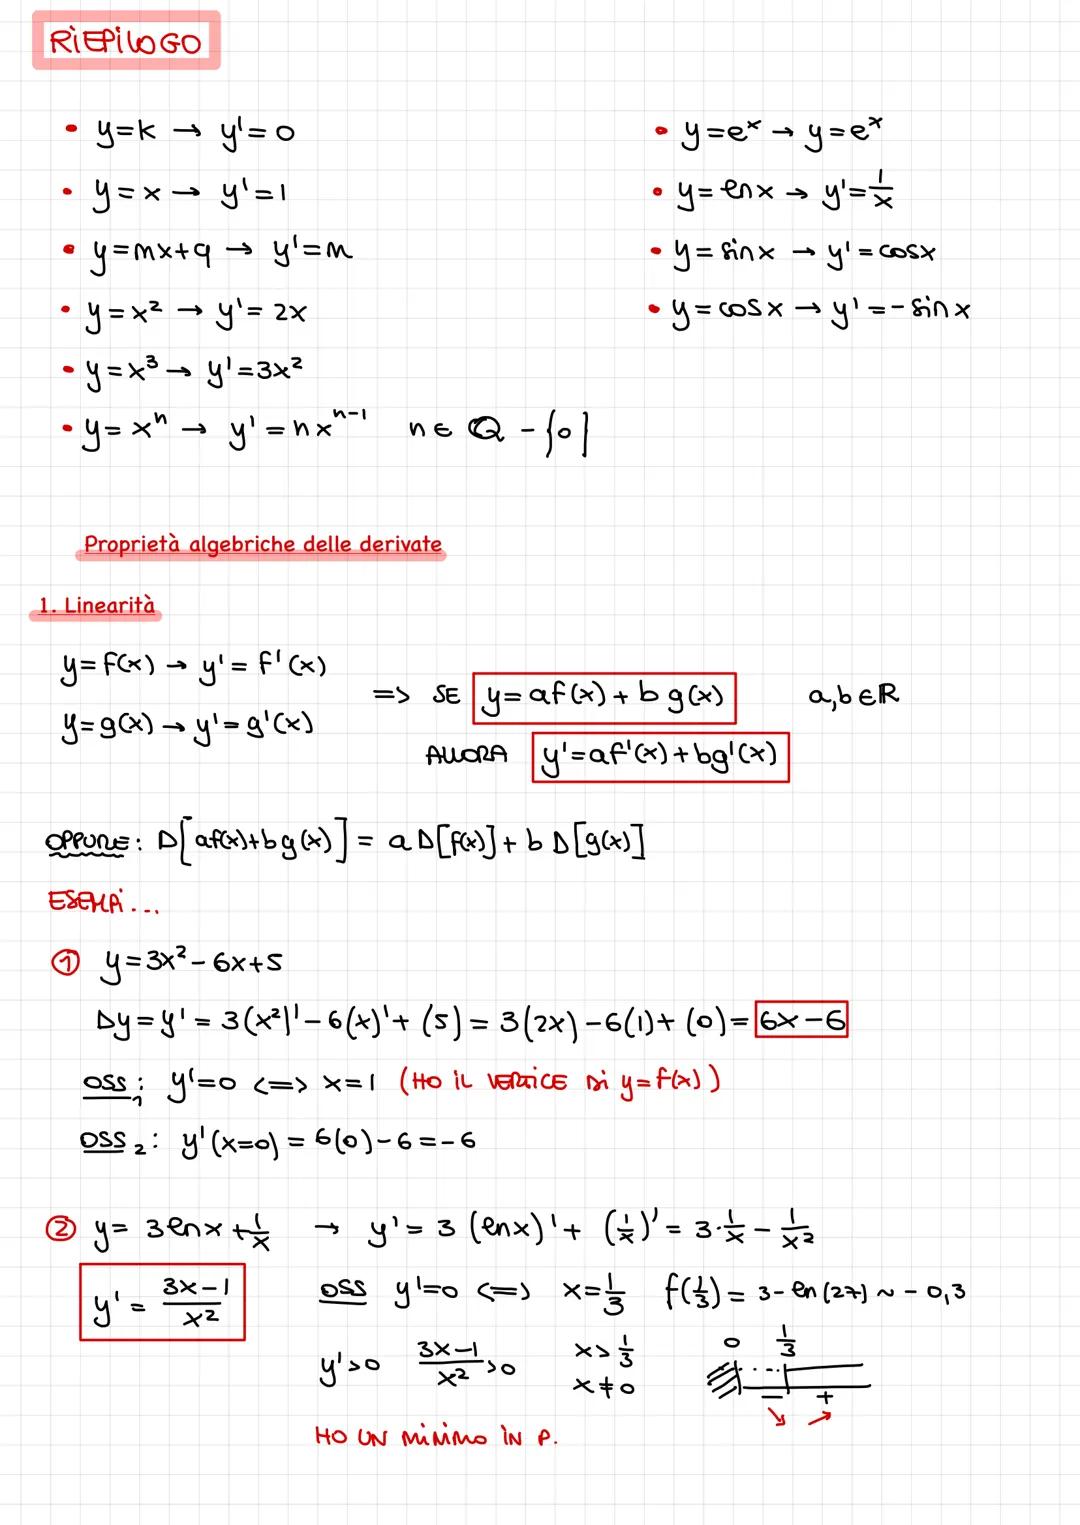 RIEPILOGO
• y=k → y'=0
• y=x → y'=1
• y=mx+q → y'=m
• y=x² → y'=2x
• y=x³ → y'=3x²
• y=xⁿ → y'=nxⁿ⁻¹ n∈ Q - {0}
• y=eˣ → y=eˣ
• y=lnx → y'=1/x
• y=sinx → y'=cosx
• y=cosx → y'=-sinx
Proprietà algebriche delle derivate
1. Linearità
y=f(x) → y'=f'(x)
y=g(x) → y'=g'(x)
=> SE y=af(x)+bg(x) a,b∈R
ALLORA y'=af'(x)+bg'(x)
OPPURE: D[af(x)+bg(x)] = aD[f(x)]+bD[g(x)]
ESEMPI...
① y=3x²-6x+5
Dy=y'=3(x²)'-6(x)'+(5)=3(2x)-6(1)+(0)=6x-6
OSS₁: y'=0 <=> x=1 (HO IL VERTICE DI y=f(x))
OSS₂: y'(x=0)=6(0)-6=-6
② y=3lnx+1/x → y'=3(lnx)'+(1/x)'=3·1/x-1/x²
y'=(3x-1)/x²
OSS y'=0 <=> x=1/3 f(1/3)=3-ln(27)~-0,3
y'>0 (3x-1)/x²>0 x>1/3
x≠0
0 1/3
- +
HO UN MINIMO IN P.